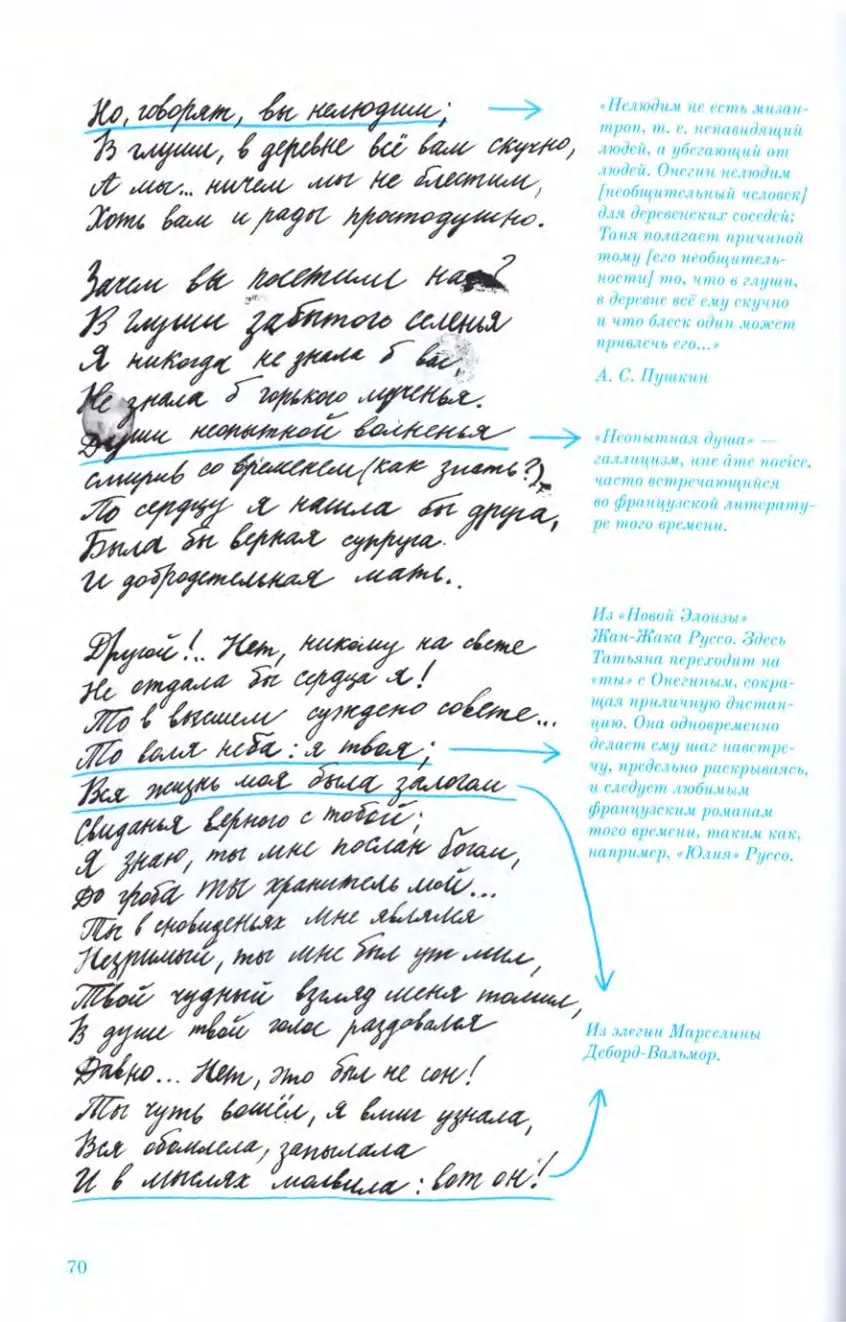 Но, говорят, вы нелюдим;
В глуши, в деревне всё вам скучно,
А мы... ничем мы не блестим,
Хоть вам и рады простодушно.
Зачем вы посетили нас?
В глуши забытого селенья
Я никогда не знала б вас,
Не знала б горького мученья.
Души неопытной волненья
Смирив со временем (как знать?),
По сердцу я нашла бы друга,
Была бы верная супруга
И добродетельная мать..
Другой!.. Нет, никому на свете
Не отдала бы сердца я!
То в вышнем суждено совете...
То воля неба: я твоя;
Вся жизнь моя была залогом
Свиданья верного с тобой;
Я знаю, ты мне послан богом,
До гроба ты хранитель мой...
Ты в сновиденьях мне являлся
Незримый, ты мне был уж мил,
Твой чудный взгляд меня томил,
В душе твой голос раздавался
Давно... Нет, это был не сон!
Ты чуть вошёл, я вмиг узнала,
Вся обомлела, запылала
И в мыслях молвила: вот он!
«Нелюдим не есть мизан-
троп, т. е. ненавидящий
людей, а убегающий от
людей. Онегин нелюдим
[необщительный человек]
для деревенских соседей;
Таня полагает причиной
тому [его необщитель-
ности] то, что в глуши,
в деревне всё ему скучно
и что блеск один может
привлечь его...»
А. С. Пушкин
«Неопытная душа» —
галлицизм, une âme novice,
часто встречающийся
во французской литерату-
ре того времени.
Из «Новой Элоизы»
Жан-Жака Руссо. Здесь
Татьяна переходит на
«ты» с Онегиным, сокра-
щая приличную дистан-
цию. Она одновременно
делает ему шаг навстре-
чу, предельно раскрываясь,
и следует любимым
французским романам
того времени, таким как,
например, «Юлия» Руссо.
Из элегии Марселины
Деборд-Вальмор.
70